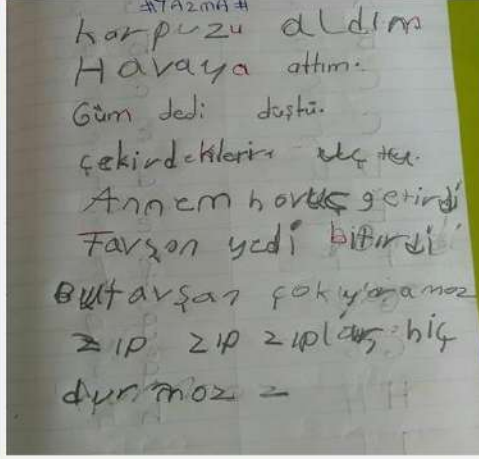 #YAZMA#
karpuzu aldım
Havaya attım.
Güm dedi düştü.
çekirdekleri uçtu.
Annem havuç getirdi
Tavşan yedi bitirdi
Bu tavşan çok yaramaz
zıp zıp zıplar hiç
durmaz